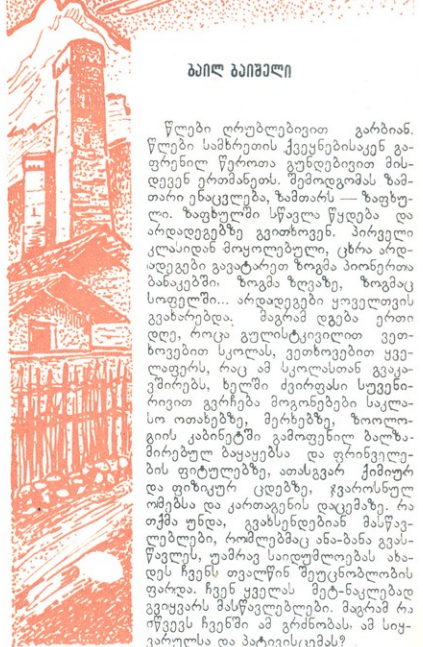 ბაილ ბაიშელი
წლები ღრუბლებივით გარბიან.
წლები სამხრეთის ქვეყნებისაკენ გა-
ფრენილ წეროთა გუნდებივით მის-
დევენ ერთმანეთს. შემოდგომას ზამ-
თარი ენაცვლება, ზამთარს — ზაფხუ-
ლი. ზაფხულში სწავლა წყდება და
არდადეგებზე გვითხოვენ. პირველი
კლასიდან მოყოლებული, ცხრა არდ-
ადეგები გავატარეთ ზოგმა პიონერთა
ბანაკებში, ზოგმა ზღვაზე, ზოგმაც
სოფელში... არდადეგები ყოველთვის
გვახარებდა. მაგრამ დგება ერთი
დღე, როცა გულისტკივილით ვეთ-
ხოვებით სკოლას, ვეთხოვებით ყვე-
ლაფერს, რაც ამ სკოლასთან გვაკა-
ვშირებს, ხელში ძვირფასი სუვენი-
რივით გვრჩება მოგონებები საკლა-
სო ოთახებზე, მერხებზე, ზოოლო-
გიის კაბინეტში გამოფენილ ბალზა-
მირებულ ბაყაყებსა და ფრინველე-
ბის ფიტულებზე, ათასგვარ ქიმიურ
და ფიზიკურ ცდებზე, ჯვაროსნულ
ომებსა და კართაგენის დაცემაზე. რა
თქმა უნდა, გვახსენდებიან მასწავ-
ლებლები, რომლებმაც ანა-ბანა გვას-
წავლეს, უამრავ საიდუმლოებას ახა-
დეს ჩვენს თვალწინ შეუცნობლობის
ფარდა. ჩვენ ყველას მეტ-ნაკლებად
გვიყვარს მასწავლებლები. მაგრამ რა
იწვევს ჩვენში ამ გრძნობას, ამ სიყ-
ვარულსა და პატივისცემას?